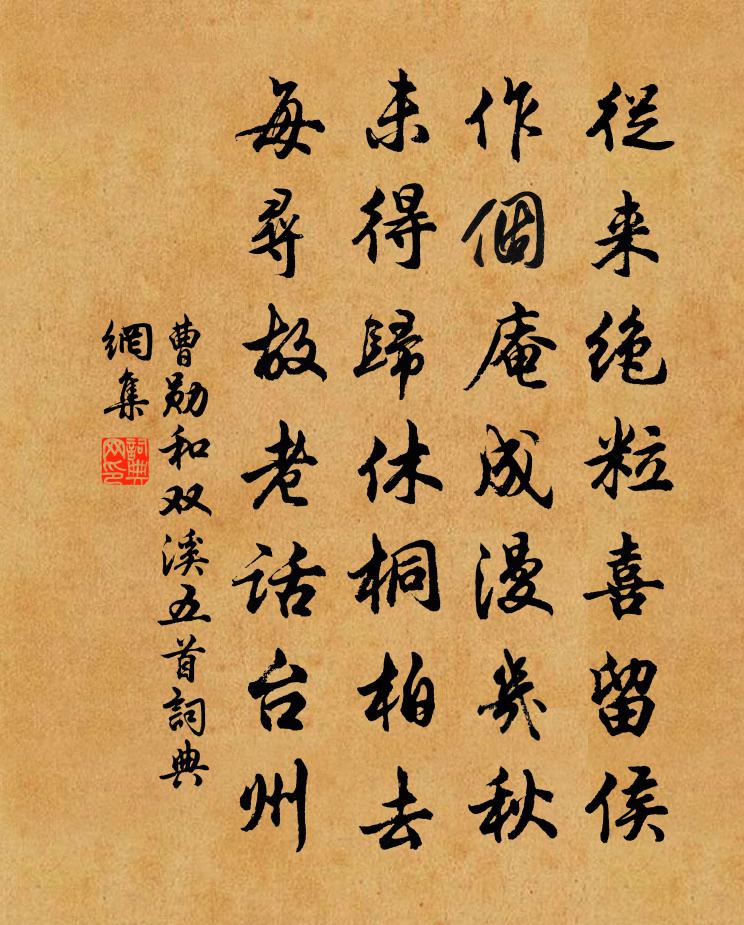 從来绝粒喜留侯
作個庵成漫幾秋
未得歸休桐柏去
每尋故老話台州
曹勋和双溪五首詞典
網集
詞典
网印